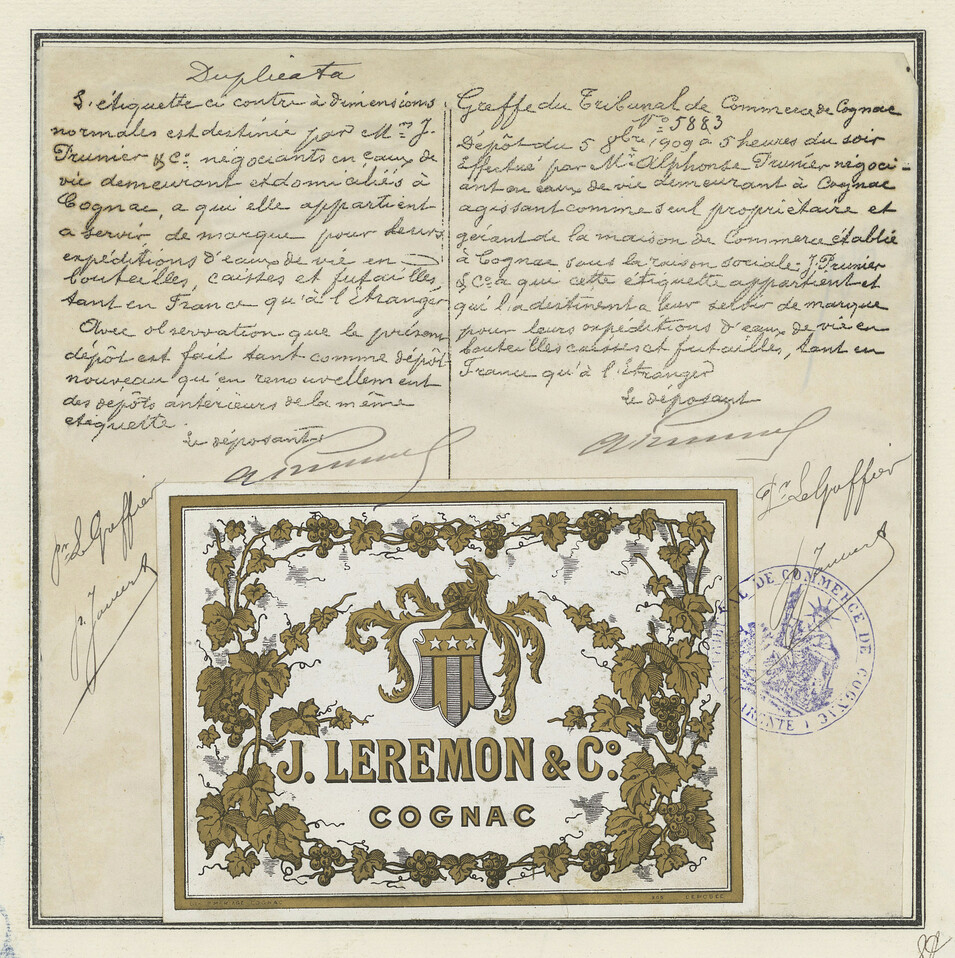 Duplicata
L'étiquette ci contre à dimensions
normales est destinée par Mrs J.
Prunier & Co. négociants en eaux de
vie demeurant et domiciliés à
Cognac, a qui elle appartient
a servir de marque pour leurs
expéditions d'eaux de vie en
bouteilles, caisses et futailles,
tant en France qu'à l'étranger
Avec observation que le présent
dépôt est fait tant comme dépôt
nouveau qu'en renouvellement
des dépôts antérieurs de la même
étiquette.
Le déposant
Pr Le Greffier
Greffe du Tribunal de Commerce de Cognac
No 5883
Dépôt du 5 8bre 1909 à 5 heures du soir
Effectué par Mr Alphonse Prunier négoci-
ant en eaux de vie demeurant à Cognac
agissant comme seul propriétaire et
gérant de la maison de Commerce établie
à Cognac sous la raison sociale J. Prunier
& Co a qui cette étiquette appartient et
qui l'a destinent a leur servir de marque
pour leurs expéditions d'eaux de vie en
bouteilles caisses et futailles, tant en
France qu'à l'étranger
Le déposant
Pr Le Greffier
J. LEREMON & Co.
COGNAC
TRIBUNAL DE COMMERCE DE COGNAC
CHARENTE